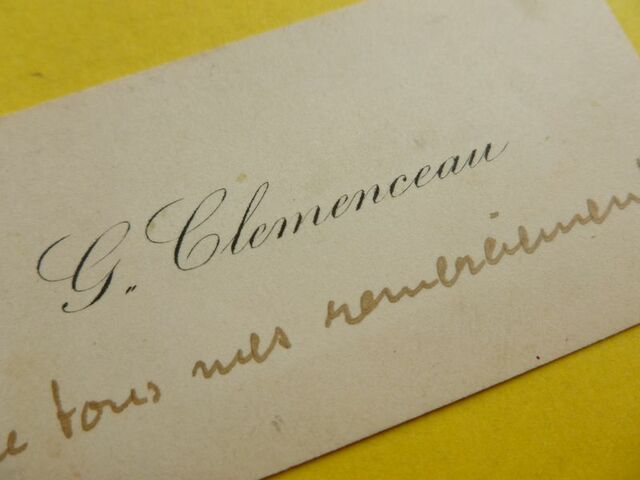 G. Clemenceau
tous mes remerciemen